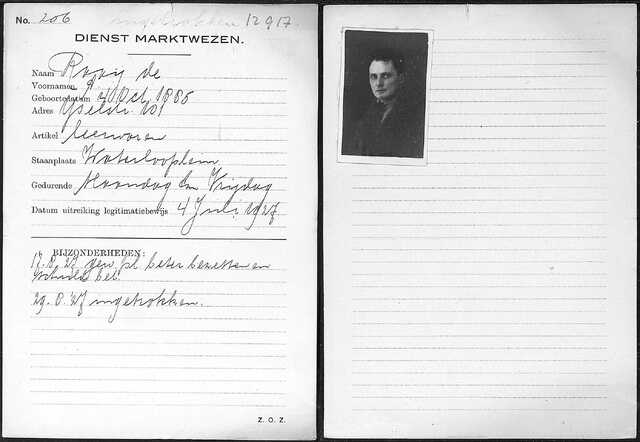 No. 206 ingetrokken 12 9 17.
DIENST MARKTWEZEN.
Naam Rooij de
Voornamen
Geboortedatum 4 Oct. 1886
Adres IJselstr. 101
Artikel leerwaren
Staanplaats Waterlooplein
Gedurende Maandag t/m Vrijdag
Datum uitreiking legitimatiebewijs 4 Juli 1927
BIJZONDERHEDEN:
17. 8. 27 gew. pl. beter bezetten en
schuld bet.
29. 8. 27 ingetrokken.
Z. O. Z.